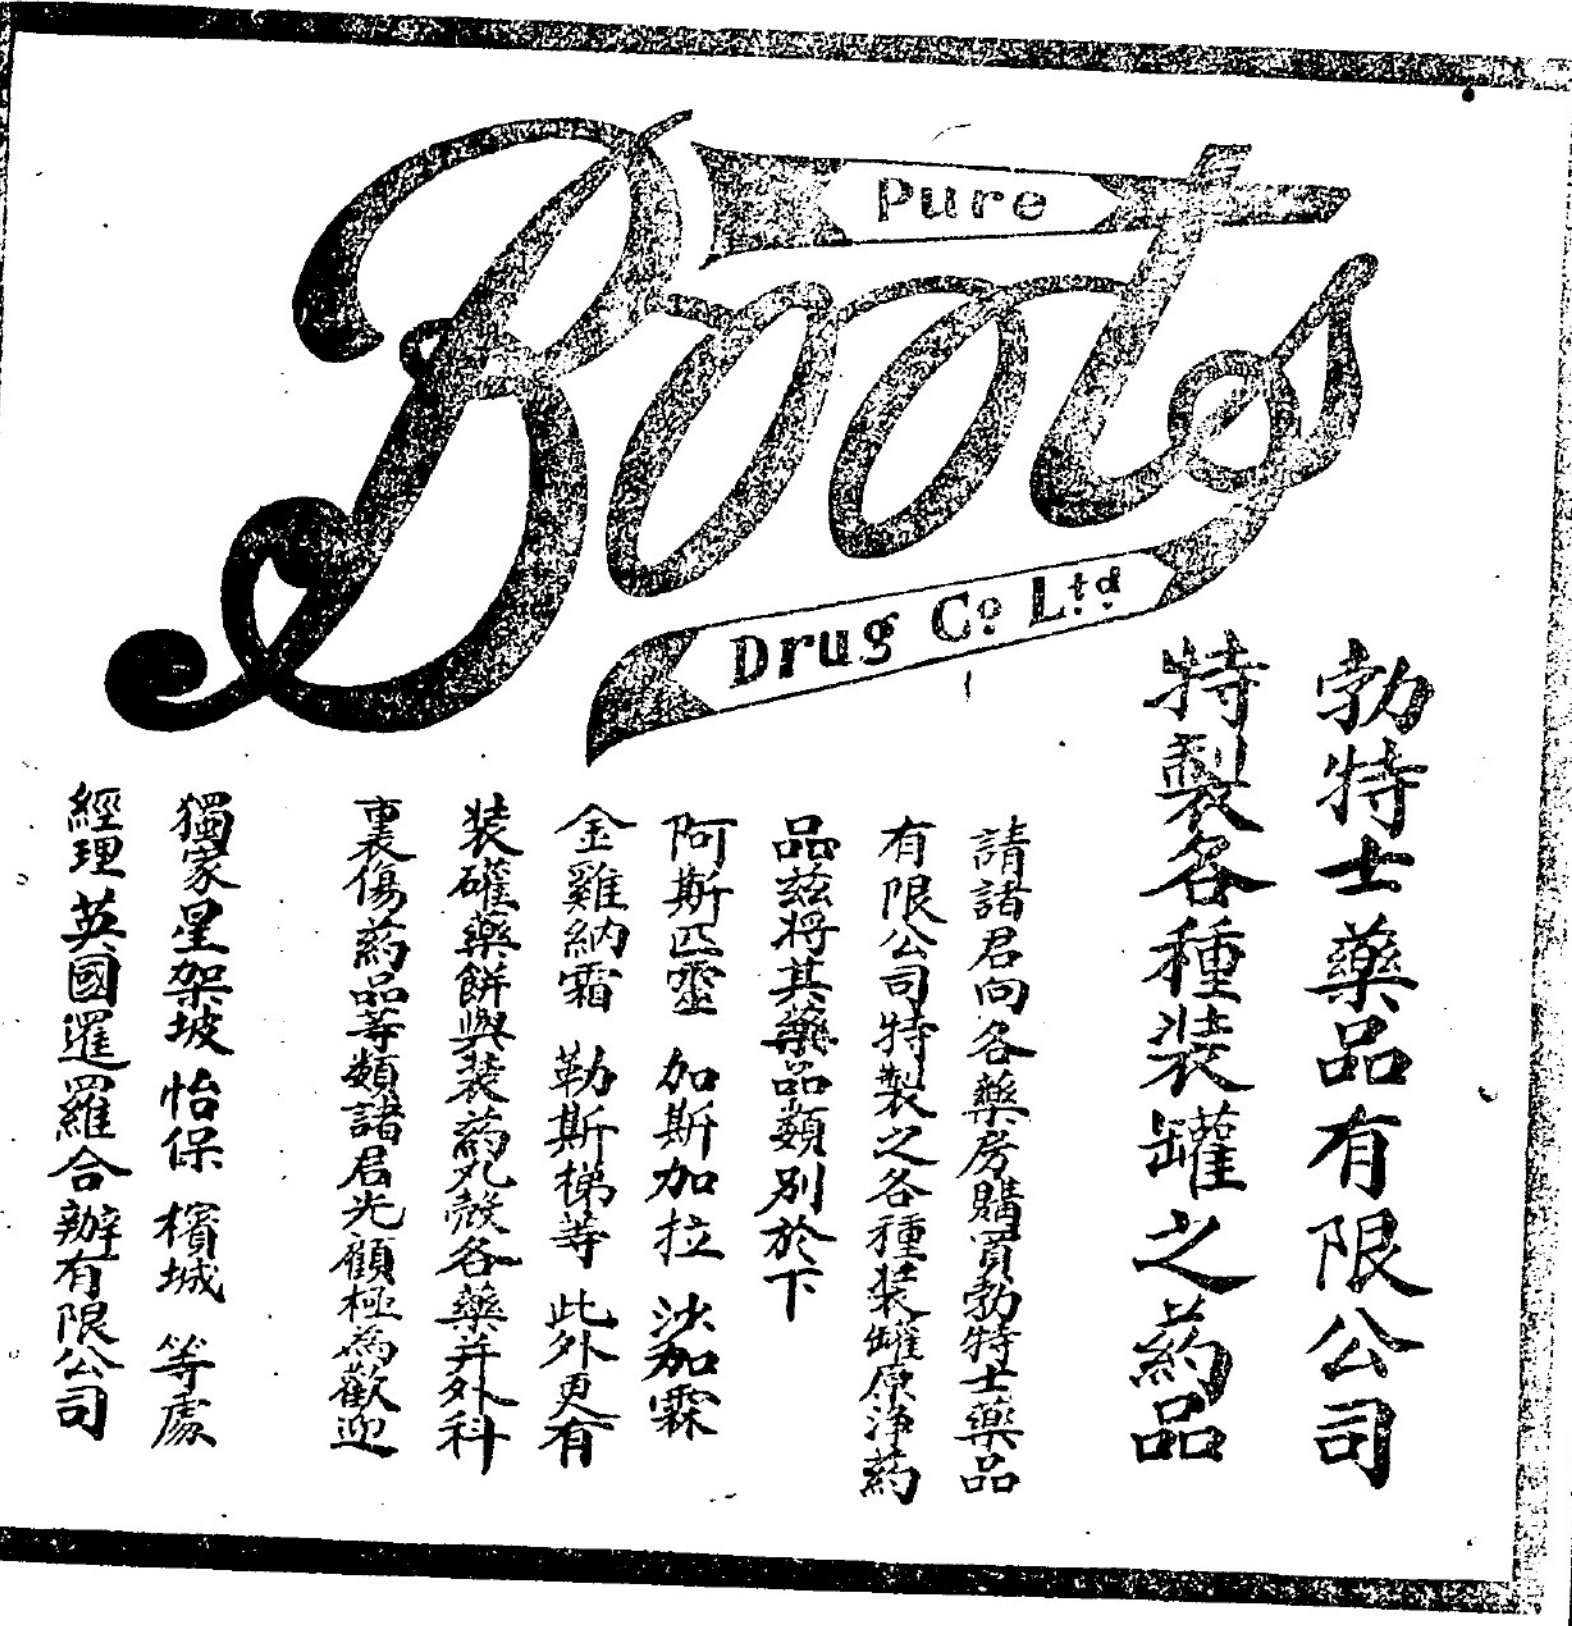 Pure
Boots
Drug Co Ltd
勃特士藥品有限公司
特製各種装罐之葯品
請諸君向各藥房購買勃特士藥品
有限公司特製之各種装罐原淨葯
品茲将其藥品類別於下
阿斯匹靈 加斯加拉 沙茄霖
金雞納霜 勒斯梯等 此外更有
装礶藥餅與装葯丸殻各藥并外科
裏傷葯品等類諸君光顧極為歡迎
獨家星架坡 怡保 檳城 等處
經理英國暹羅合辦有限公司